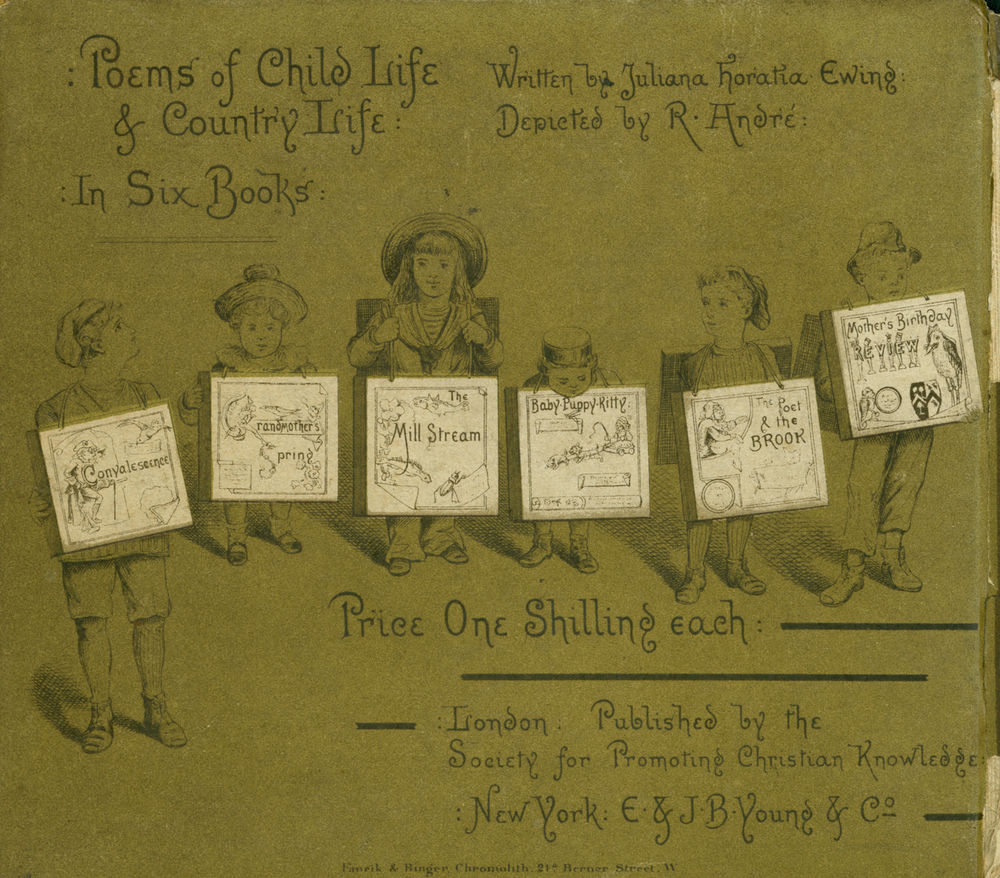 : Poems of Child Life
& Country Life :
: In Six Books :
Written by Juliana Horatia Ewing :
Depicted by R. André :
Convalescence
Grandmother's
Spring
The
Mill Stream
Baby Puppy Kitty
The Poet
& the
BROOK
Mother's Birthday
REVIEW
Price One Shilling each :
: London : Published by the
Society for Promoting Christian Knowledge :
: New York : E. & J. B. Young & Co
Emrik & Binger, Chromolith. 21a Berner Street, W